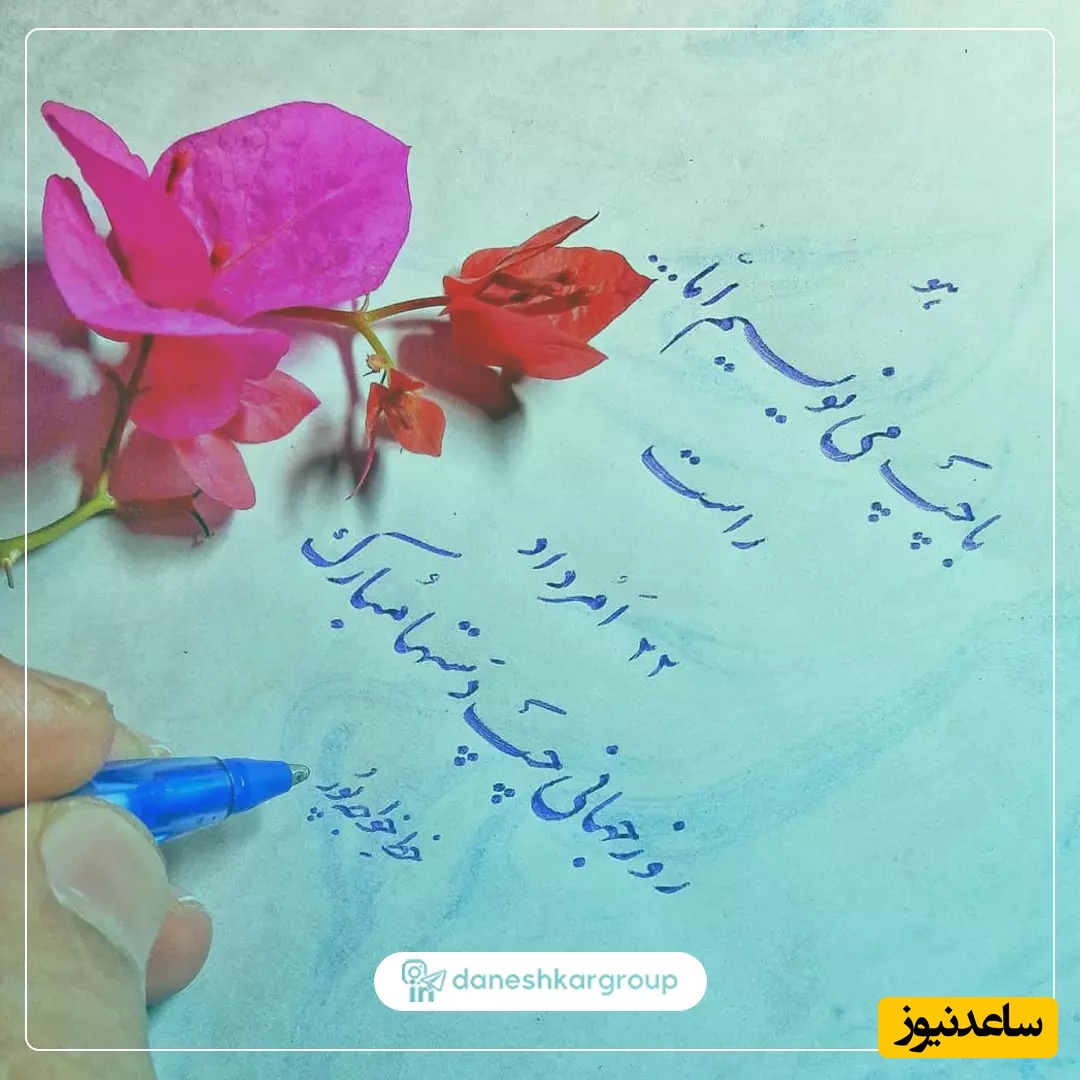 با چپ می نویسیم اما...
راست
۲۲ اَمُرداد
روز جهانی چپ دَستها مُبارک
daneshkargroup
ساعدنیوز